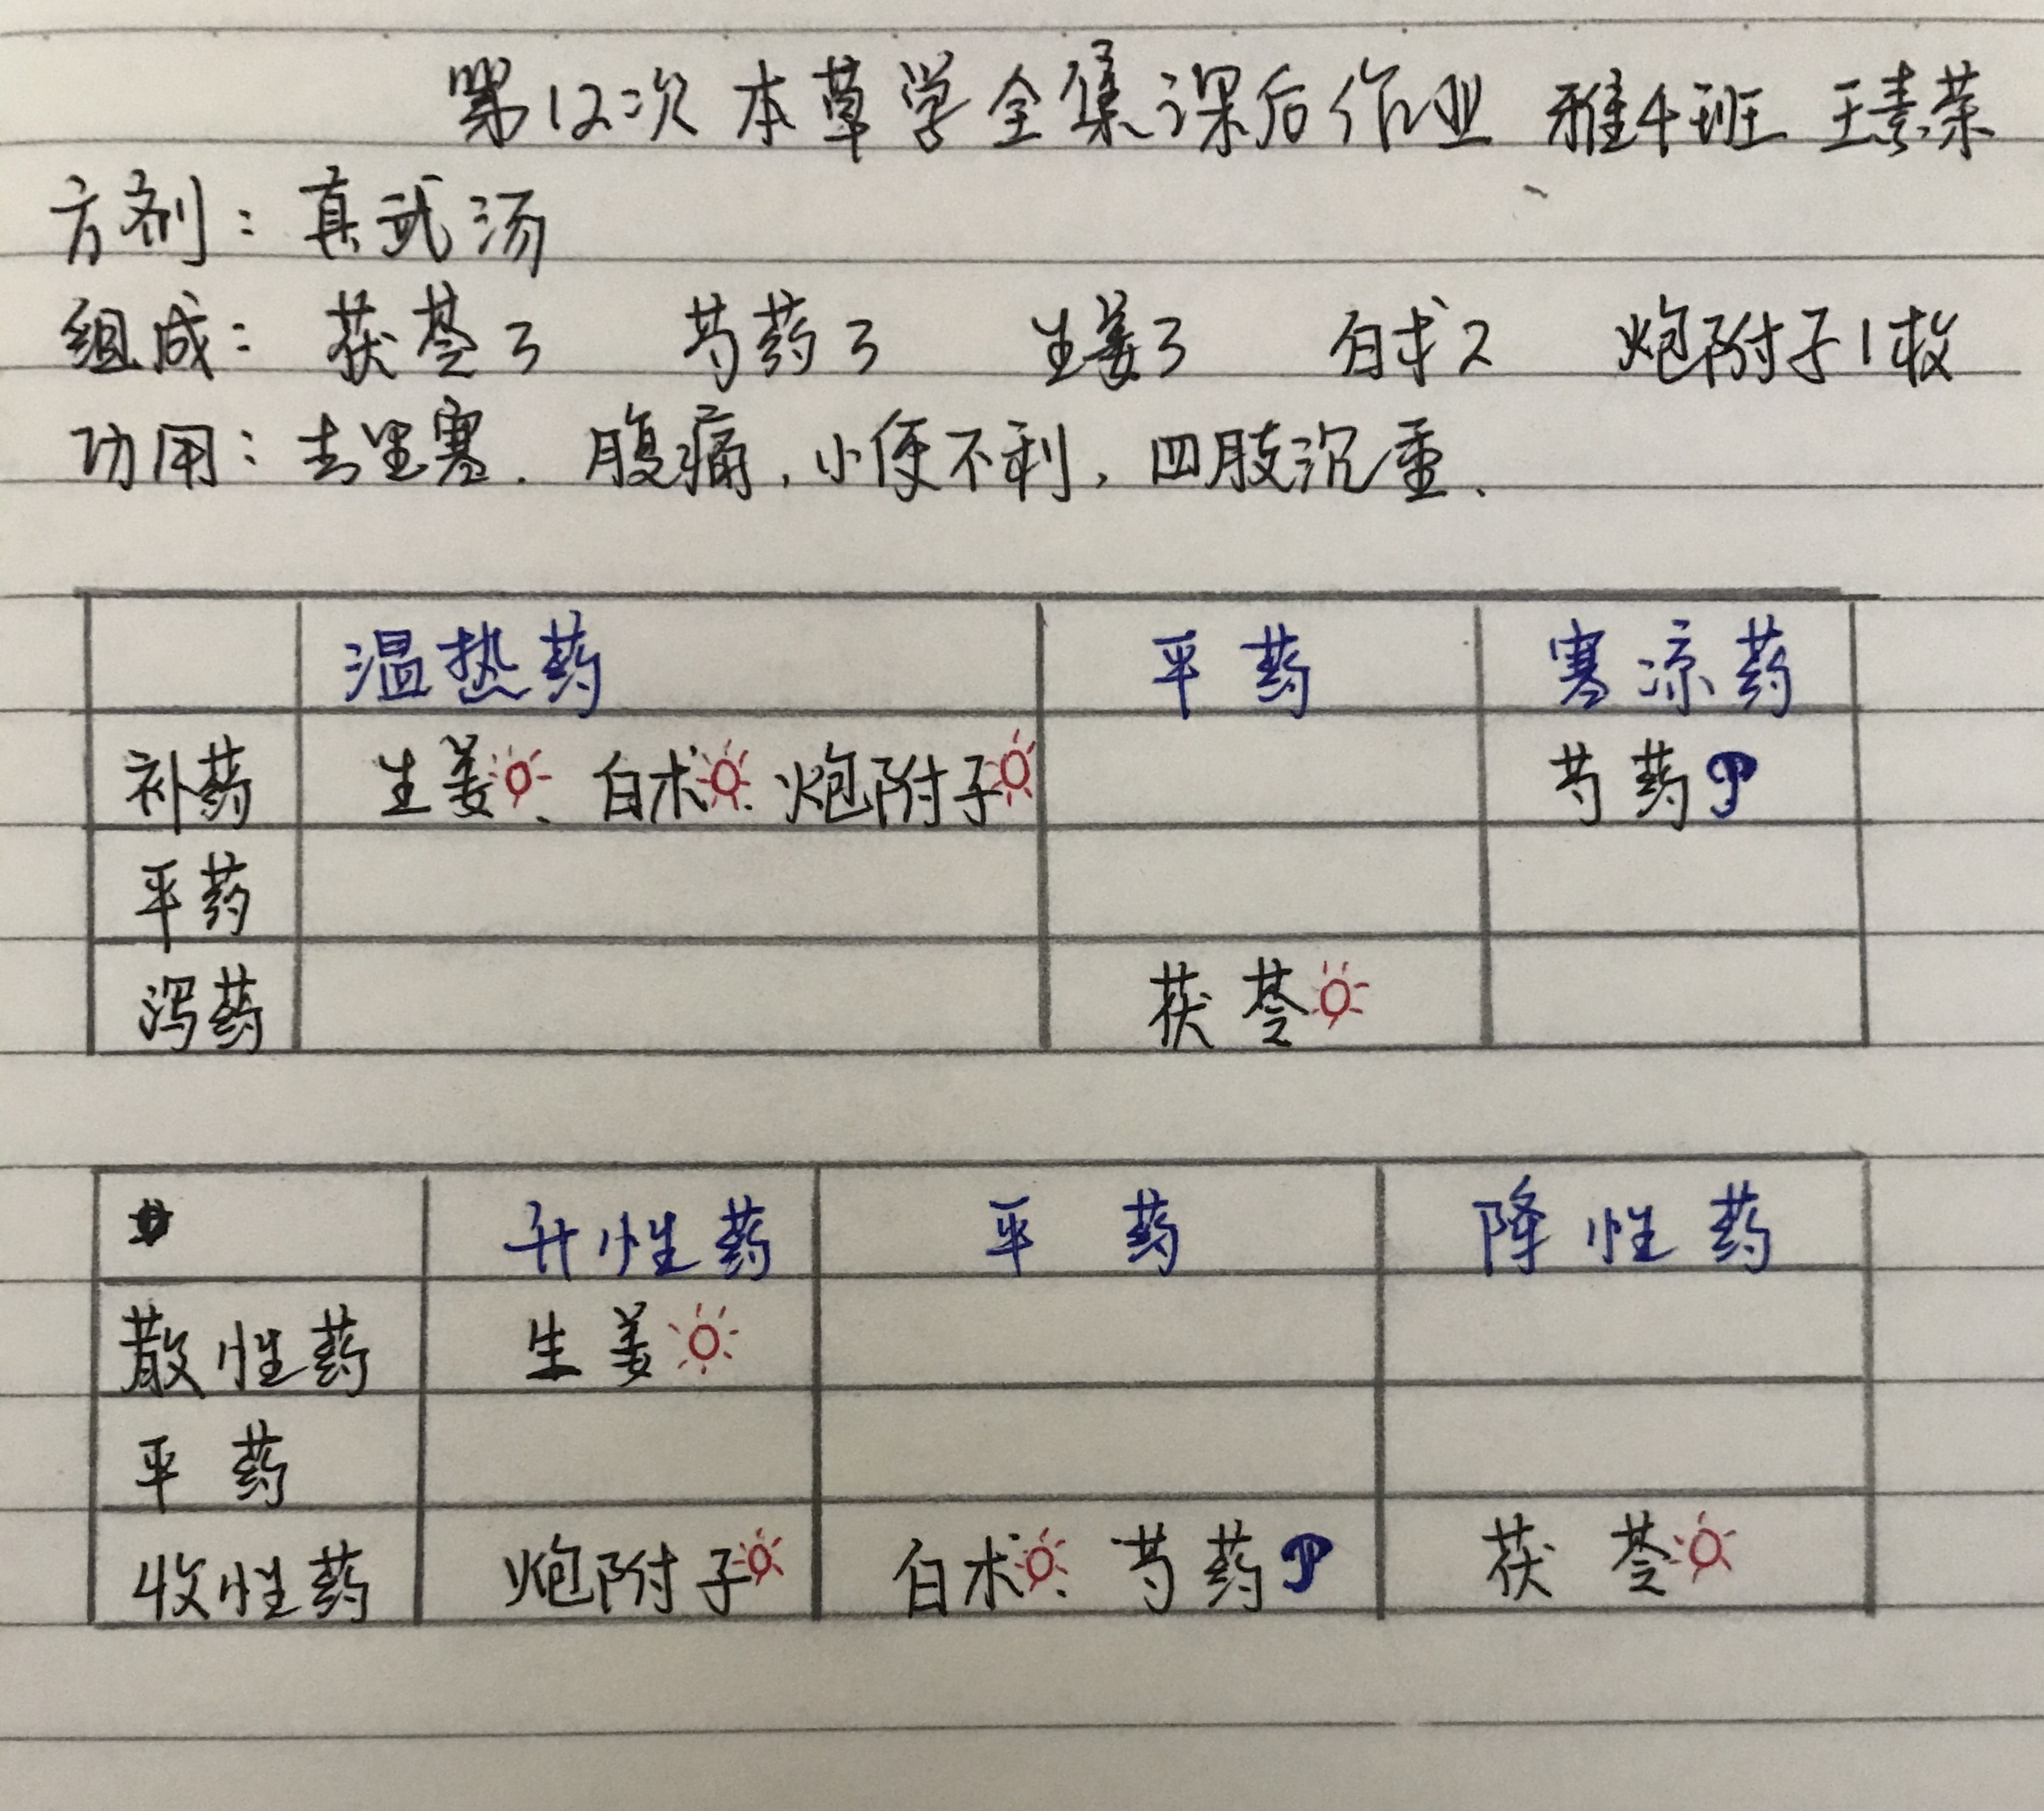 第12次 本草学全集课后作业 雅4班 王素荣
方剂：真武汤
组成：茯苓3 芍药3 生姜3 白术2 炮附子1枚
功用：去里寒．腹痛，小便不利，四肢沉重．
温热药 平药 寒凉药
补药 生姜、白术、炮附子 芍药
平药
泻药 茯苓
升性药 平药 降性药
散性药 生姜
平药
收性药 炮附子 白术、芍药 茯苓